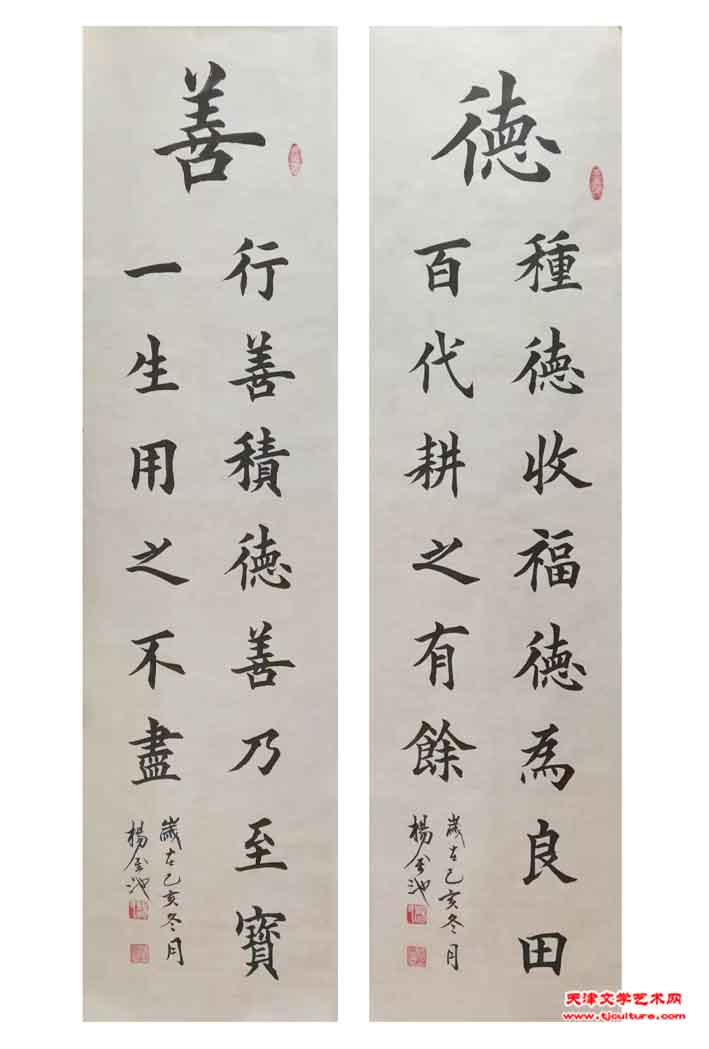 德
種德收福德為良田
百代耕之有餘
歲在己亥冬月
楊金池
善
行善積德善乃至寶
一生用之不盡
歲在己亥冬月
楊金池
天津文学艺术网
www.tjculture.com